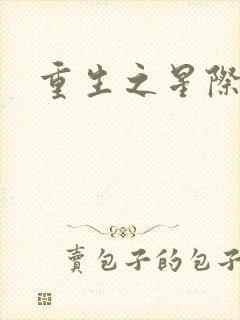 重生之星際
賣包子的包子